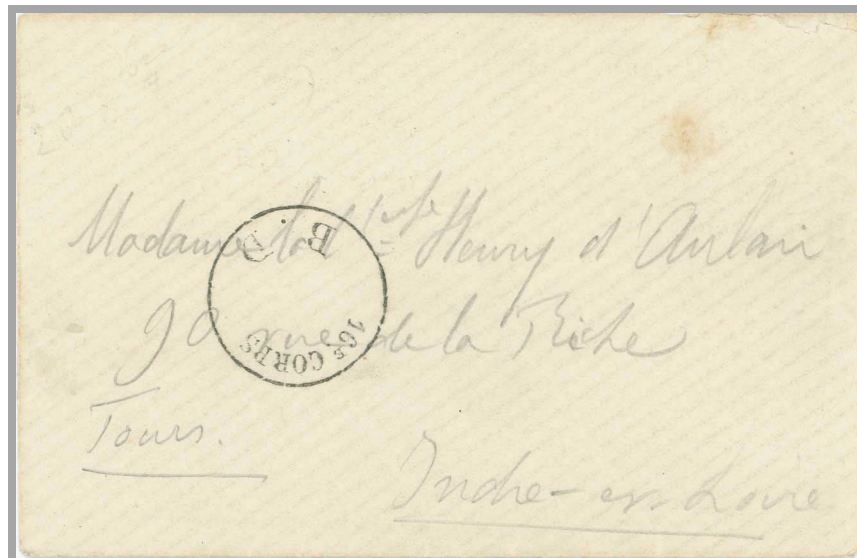 Madame la Vtesse Henry d'Aulan
90 rue de la Riche
Tours.
Indre-et-Loire
B. D
16E CORPS